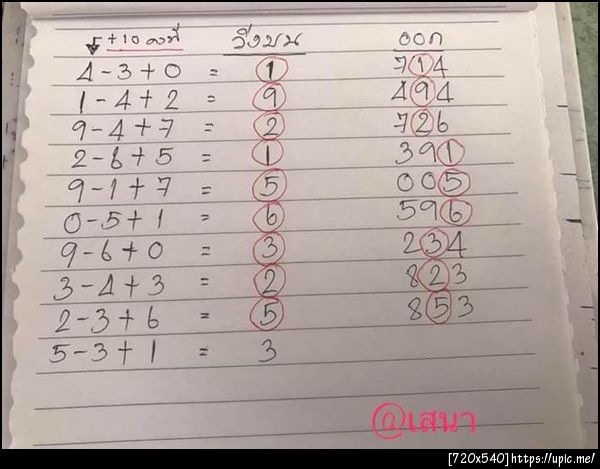 5 +10 คงที่ วิ่งบน ออก
4-3+0 = 1 714
1-4+2 = 9 494
9-4+7 = 2 726
2-6+5 = 1 391
9-1+7 = 5 005
0-5+1 = 6 596
9-6+0 = 3 234
3-4+3 = 2 823
2-3+6 = 5 853
5-3+1 = 3
@เสนา
[720x540]https://upic.me/